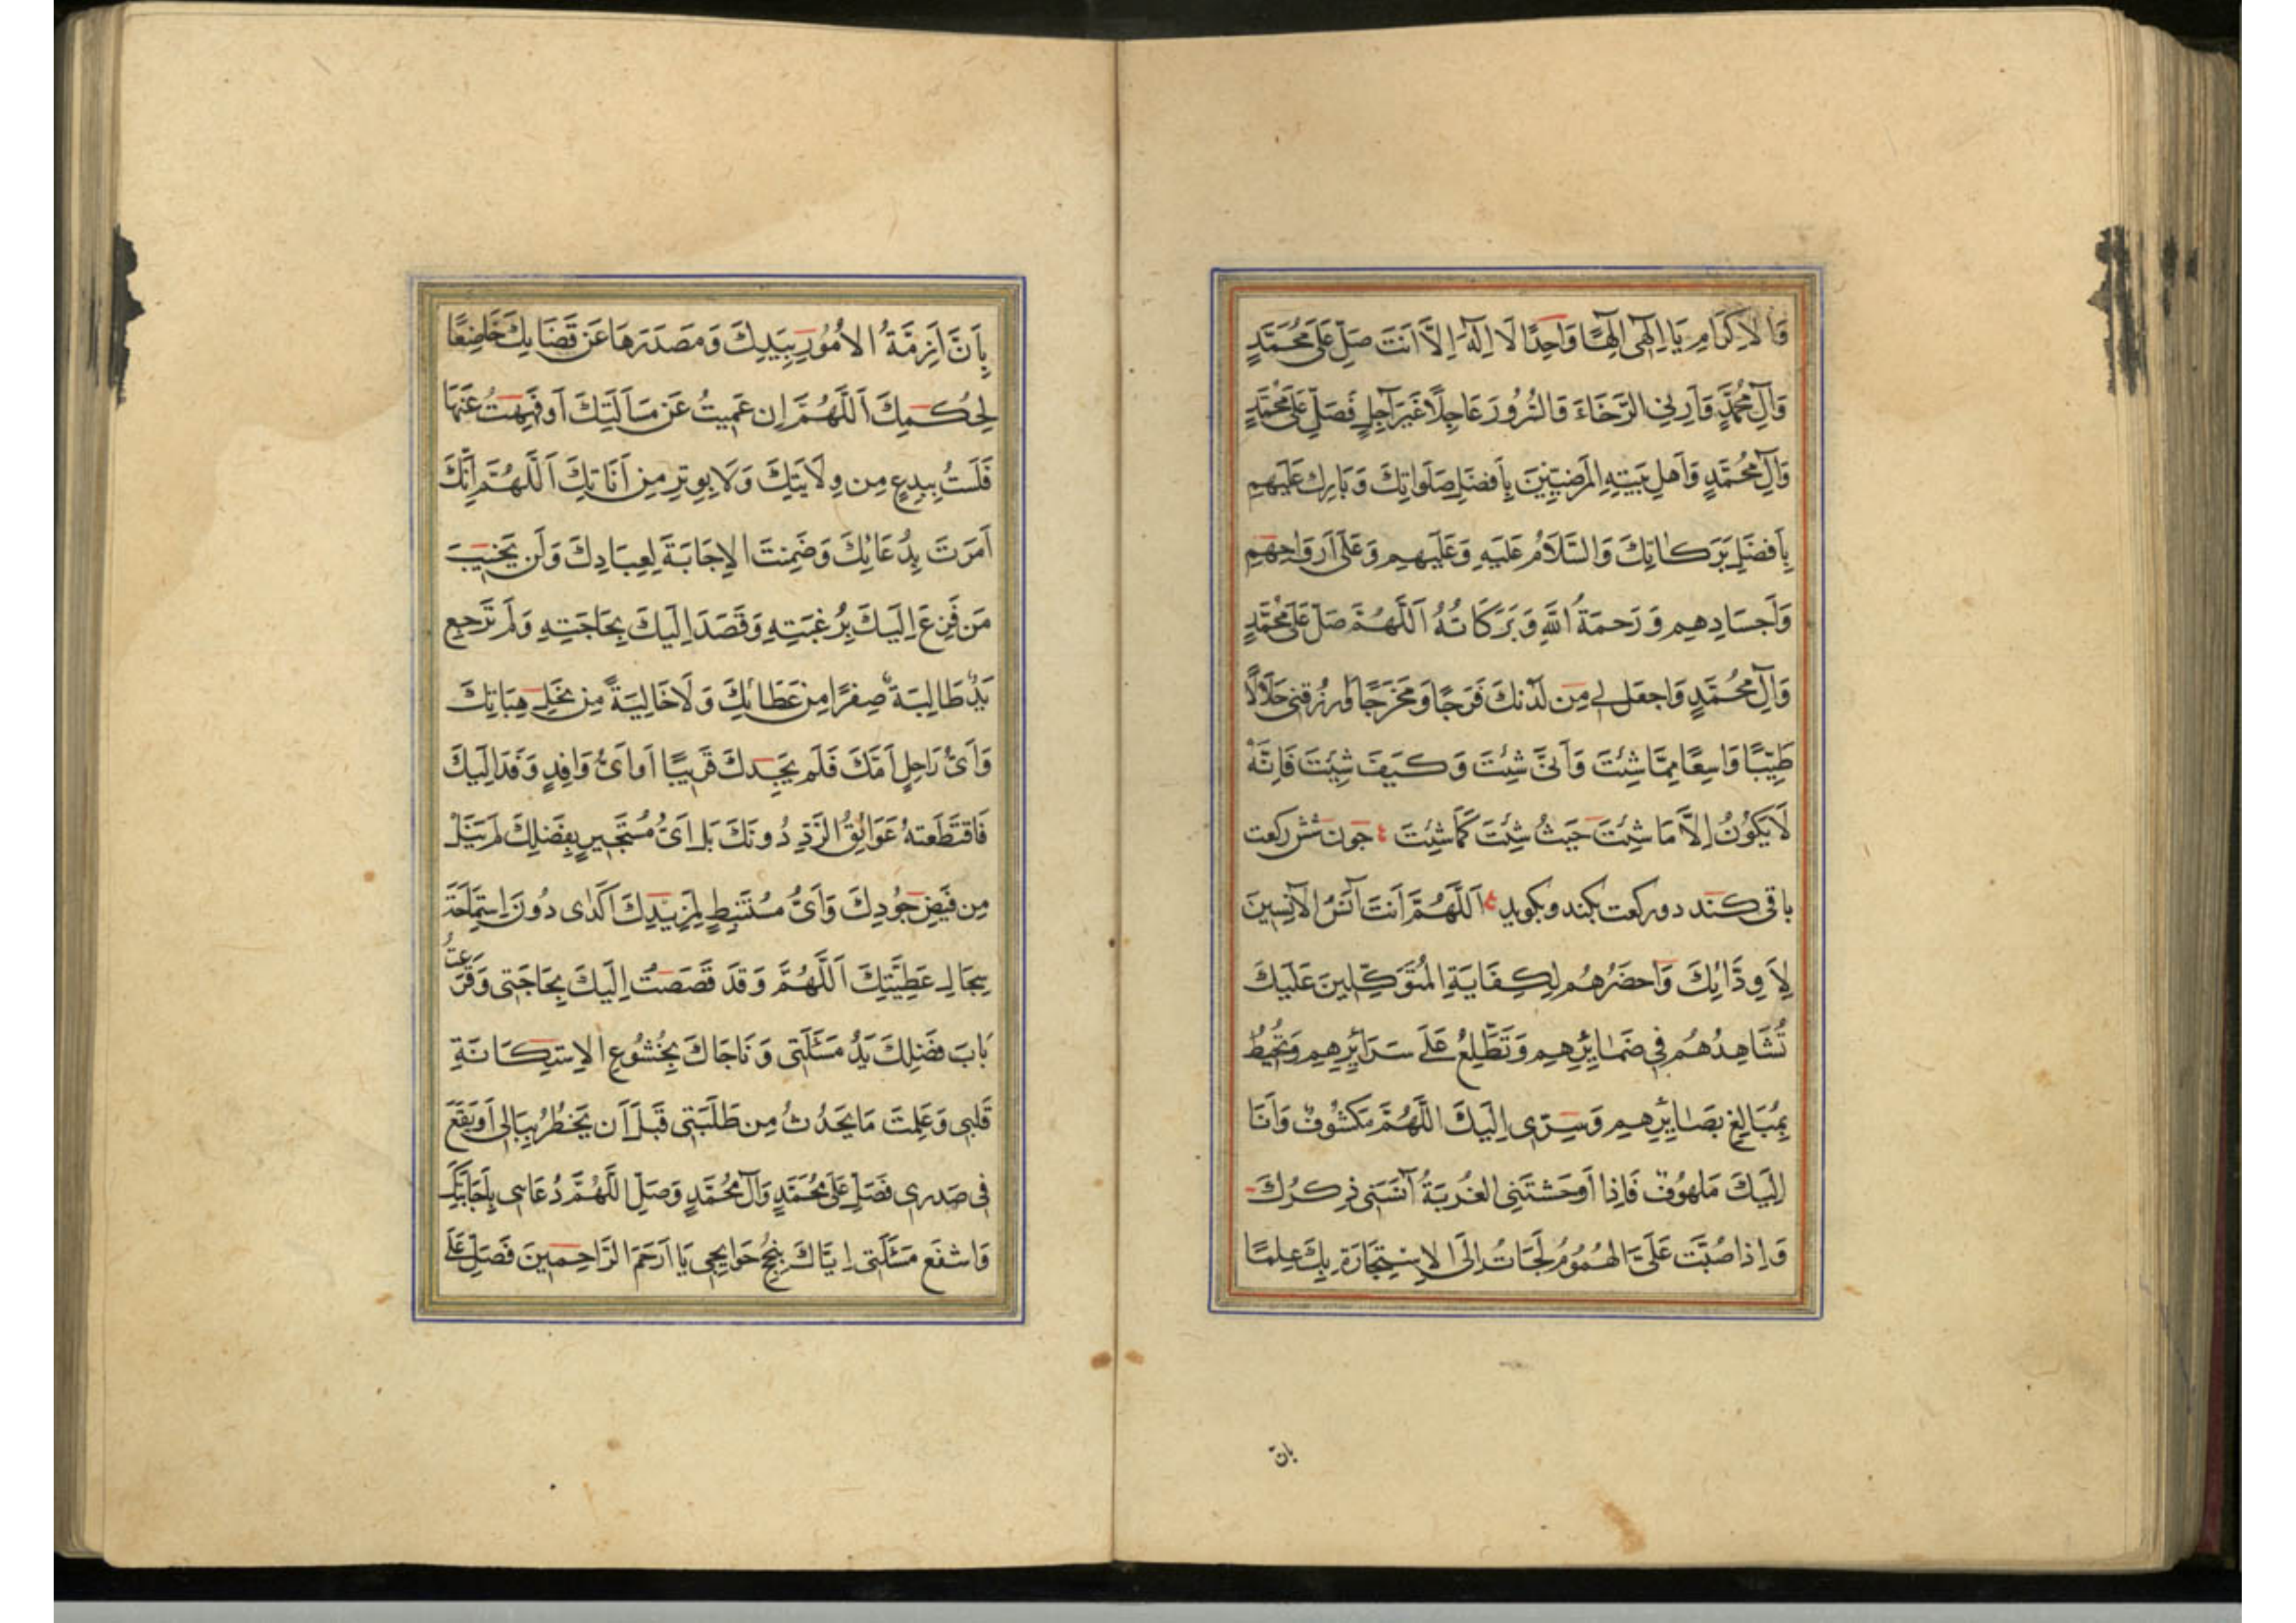 وَالاِكرَامِ يَا اِلٰهِی اِلٰهًا وَاحِدًا لَا اِلٰهَ اِلَّا اَنتَ صَلِّ عَلَی مُحَمَّدٍ
وَآلِ مُحَمَّدٍ وَاَرِنِی الرَّخَاءَ وَالسُّرُورَ عَاجِلًا غَیرَ آجِلٍ فَصَلِّ عَلَی مُحَمَّدٍ
وَآلِ مُحَمَّدٍ وَاَهلِ بَیتِهِ المَرضِیِّینَ بِاَفضَلِ صَلَوَاتِكَ وَبَارِك عَلَیهِم
بِاَفضَلِ بَرَكَاتِكَ وَالسَّلَامُ عَلَیهِ وَعَلَیهِم وَعَلَی اَروَاحِهِم
وَاَجسَادِهِم وَرَحمَةُ اللّٰهِ وَبَرَكَاتُهُ اَللَّهُمَّ صَلِّ عَلَی مُحَمَّدٍ
وَآلِ مُحَمَّدٍ وَاجعَل لِی مِن لَدُنكَ فَرَجًا وَمَخرَجًا وَارزُقنِی حَلَالًا
طَیِّبًا وَاسِعًا مِمَّا شِئتَ وَاَنَّی شِئتَ وَكَیفَ شِئتَ فَاِنَّهُ
لَا یَكُونُ اِلَّا مَا شِئتَ حَیثُ شِئتَ كَمَا شِئتَ جون شش رکعت
باقی کند دو رکعت بکند وبکوید اَللَّهُمَّ اَنتَ آنَسُ الآنِسِینَ
لِاَوِدَّائِكَ وَاَحضَرُهُم لِكِفَایَةِ المُتَوَكِّلِینَ عَلَیكَ
تُشَاهِدُهُم فِی ضَمَایِرِهِم وَتَطَّلِعُ عَلَی سَرَایِرِهِم وَتُحِیطُ
بِمَبَالِغِ بَصَایِرِهِم وَسِرِّی اِلَیكَ اللَّهُمَّ مَكشُوفٌ وَاَنَا
اِلَیكَ مَلهُوفٌ فَاِذَا اَوحَشَتَنِی الغُربَةُ آنَسَنِی ذِكرُكَ
وَاِذَا صُبَّت عَلَیَّ الهُمُومُ لَجَاتُ اِلَی الاِستِجَارَةِ بِكَ عِلمًا
بان
بِاَنَّ اَزِمَّةَ الاُمُورِ بِیَدِكَ وَمَصدَرَهَا عَن قَضَایِكَ خَاضِعًا
لِحُكمِكَ اَللَّهُمَّ اِن عَمِیتُ عَن مَسَالَتِكَ اَو فَهِهتُ عَنهَا
فَلَستُ بِبِدعٍ مِن وِلَایَتِكَ وَلَا بِوِترٍ مِن اَنَاتِكَ اَللَّهُمَّ اِنَّكَ
اَمَرتَ بِدُعَائِكَ وَضَمِنتَ الاِجَابَةَ لِعِبَادِكَ وَلَن یَخِیبَ
مَن فَزِعَ اِلَیكَ بِرُغبَتِهِ وَقَصَدَ اِلَیكَ بِحَاجَتِهِ وَلَم تَرجِع
یَدٌ طَالِبَةٌ صِفرًا مِن عَطَائِكَ وَلَا خَالِیَةً مِن نِحَلِ هِبَاتِكَ
وَاَیُّ رَاحِلٍ اَمَّكَ فَلَم یَجِدكَ قَرِیبًا اَو اَیُّ وَافِدٍ وَفَدَ اِلَیكَ
فَاقتَطَعتهُ عَوَایِقُ الرَّدِّ دُونَكَ بَل اَیُّ مُستَجِیرٍ بِفَضلِكَ لَم یَنَل
مِن فَیضِ جُودِكَ وَاَیُّ مُستَنبِطٍ لِمَزِیدِكَ اَكدَی دُونَ اِستِمَاحَةِ
سِجَالِ عَطِیَّتِكَ اَللَّهُمَّ وَقَد قَصَصتُ اِلَیكَ بِحَاجَتِی وَقَرَعَتُ
بَابَ فَضلِكَ یَدُ مَسئَلَتِی وَنَاجَاكَ بِخُشُوعِ الاِستِكَانَةِ
قَلبِی وَعَلِمتَ مَا یَحدُثُ مِن طَلَبَتِی قَبلَ اَن یَخطُرَ بِبَالِی اَو یَقَعَ
فِی صَدرِی فَصَلِّ عَلَی مُحَمَّدٍ وَآلِ مُحَمَّدٍ وَصِلِ اللَّهُمَّ دُعَاىی بِاِجَابَتِكَ
وَاشفَع مَسئَلَتِی اِیَّاكَ بِنُجحِ حَوَایِجِی یَا اَرحَمَ الرَّاحِمِینَ فَصَلِّ عَلَی